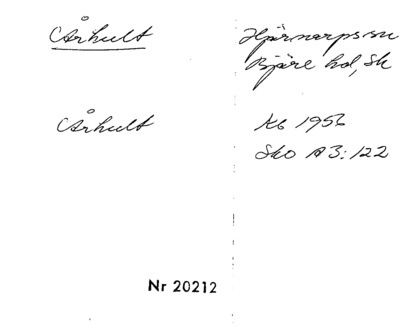 Århult
Hjärnarps sn
Bjäre hd, Sk
Århult
Kb 1956
SkO A3:122
Nr 20212